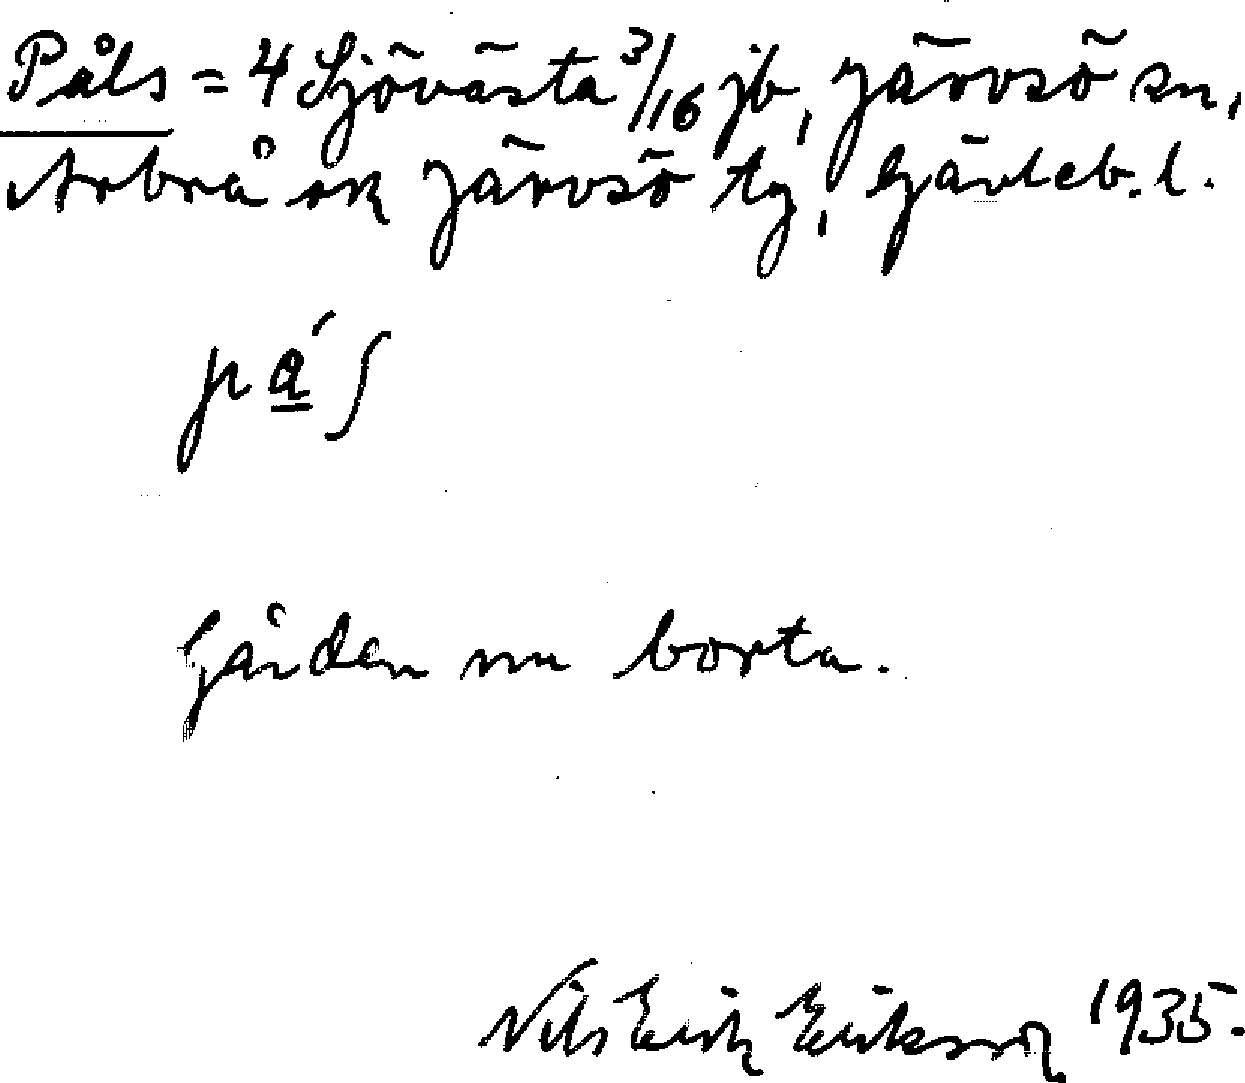 Påls = 4 Sjövästa 3/16 jb, Järvsö sn,
Arbrå ok Järvsö tg, Gävleb. l.
pa̲´ʃ
Gården nu borta.
Nils Erik Eriksson 1935.